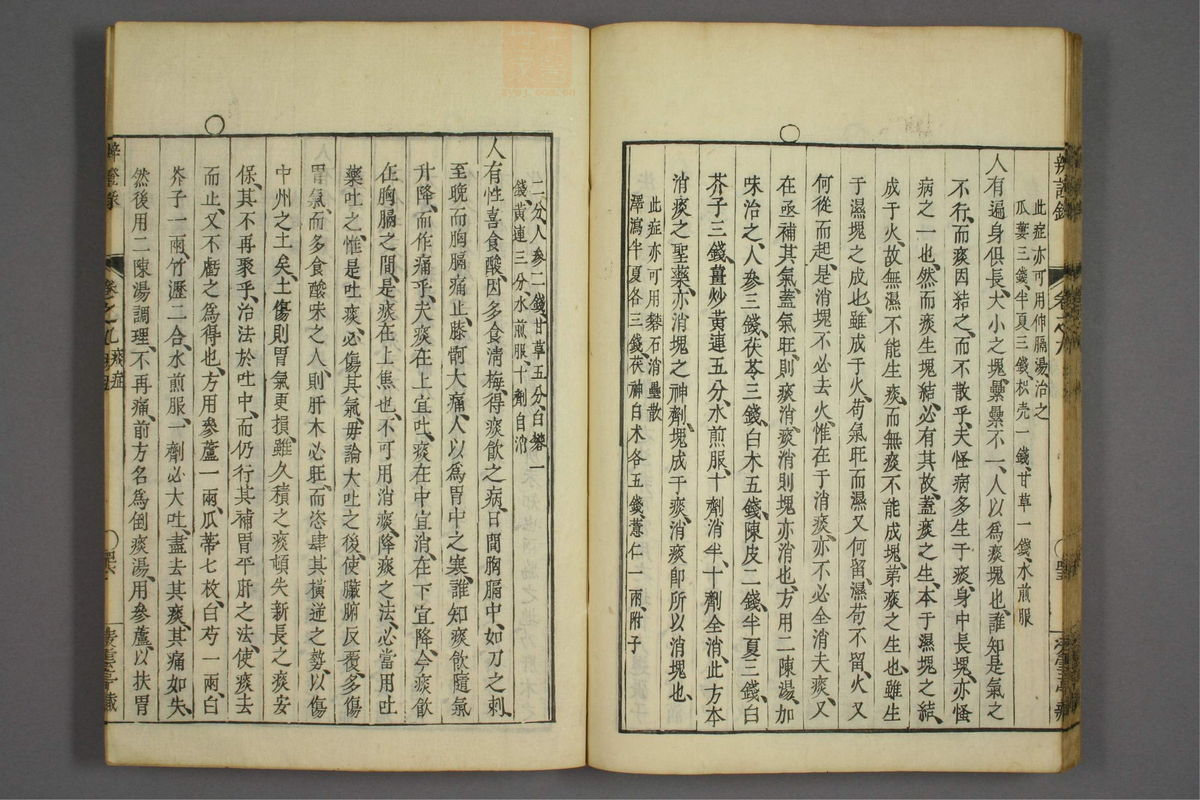 此症亦可用伸膈湯治之
瓜蔞三錢、半夏三錢、枳壳一錢、甘草一錢、水煎服
人有遍身俱長大小之塊、纍纍不一、人以爲痰塊也、誰知是氣之
不行、而痰因結之、而不散乎、夫怪病多生于痰、身中長塊、亦怪
病之一也、然而痰生塊結、必有其故、蓋痰之生、本于濕、塊之結、
成于火、故無濕不能生痰、而無痰不能成塊、第痰之生也、雖生
于濕、塊之成也、雖成于火、苟氣旺而濕又何留、濕苟不留、火又
何從而起、是消塊不必去火、惟在于消痰、亦不必全消夫痰、又
在亟補其氣、蓋氣旺則痰消、痰消則塊亦消也、方用二陳湯、加
味治之、人參三錢、茯苓三錢、白术五錢、陳皮二錢、半夏三錢、白
芥子三錢、薑炒黃連五分、水煎服、十劑消半、十劑全消、此方本
消痰之聖藥、亦消塊之神劑、塊成于痰、消痰即所以消塊也、
此症亦可用礬石消壘散
澤瀉半夏各三錢、茯神白术各五錢、薏仁一兩、附子
二分、人參二錢、甘草五分、白礬一
錢、黃連三分、水煎服、十劑自消
人有性喜食酸、因多食清梅、得痰飲之病、日間胸膈中、如刀之刺
至晚而胸膈痛止、膝䯊大痛、人以爲胃中之寒、誰知痰飲隨氣
升降、而作痛乎、夫痰在上宜吐、痰在中宜消、在下宜降、今痰飲
在胸膈之間、是痰在上焦也、不可用消痰、降痰之法、必當用吐
藥吐之、惟是吐痰必傷其氣、毋論大吐之後、使臟腑反覆、多傷
胃氣、而多食酸味之人、則肝木必旺、而恣肆其橫逆之勢、以傷
中州之土矣、土傷則胃氣更損、雖久積之痰頓失、新長之痰安
保其不再聚乎、治法於吐中、而仍行其補胃平肝之法、使痰去
而止、又不虧之爲得也、方用參蘆一兩、瓜蒂七枚、白芍一兩、白
芥子一兩、竹瀝二合、水煎服、一劑必大吐、盡去其痰、其痛如失、
然後用二陳湯調理、不再痛、前方名爲倒痰湯、用參蘆、以扶胃
辨證錄
卷之九 痰症